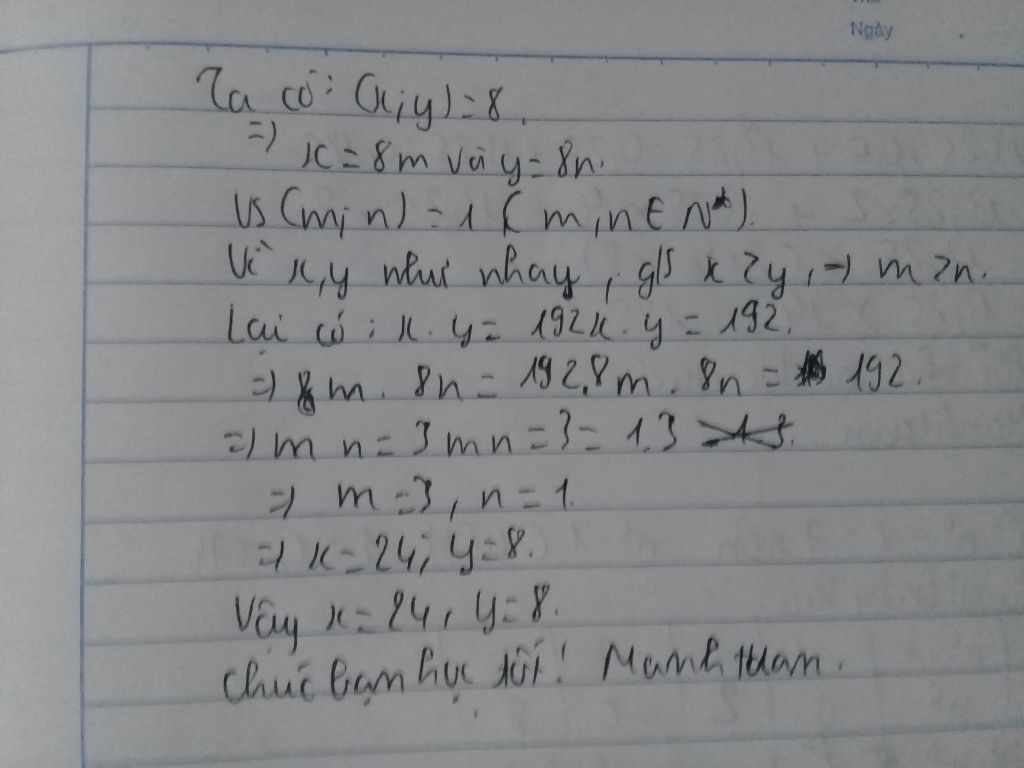 Ngày
Ta có: (x;y)=8.
=> x=8m và y=8n.
Vs (m; n) = 1 ( m,n ∈ N*).
Vì x,y như nhay, g/s x>y, => m>n.
Lại có: x.y= 192x.y = 192.
=> 8m. 8n= 192.8m. 8n= 192.
=> m n= 3mn=3= 1.3
=> m=3, n=1.
=> x=24; y=8.
Vậy x=24, y=8.
Chúc bạn học tốt! Manh tuan.